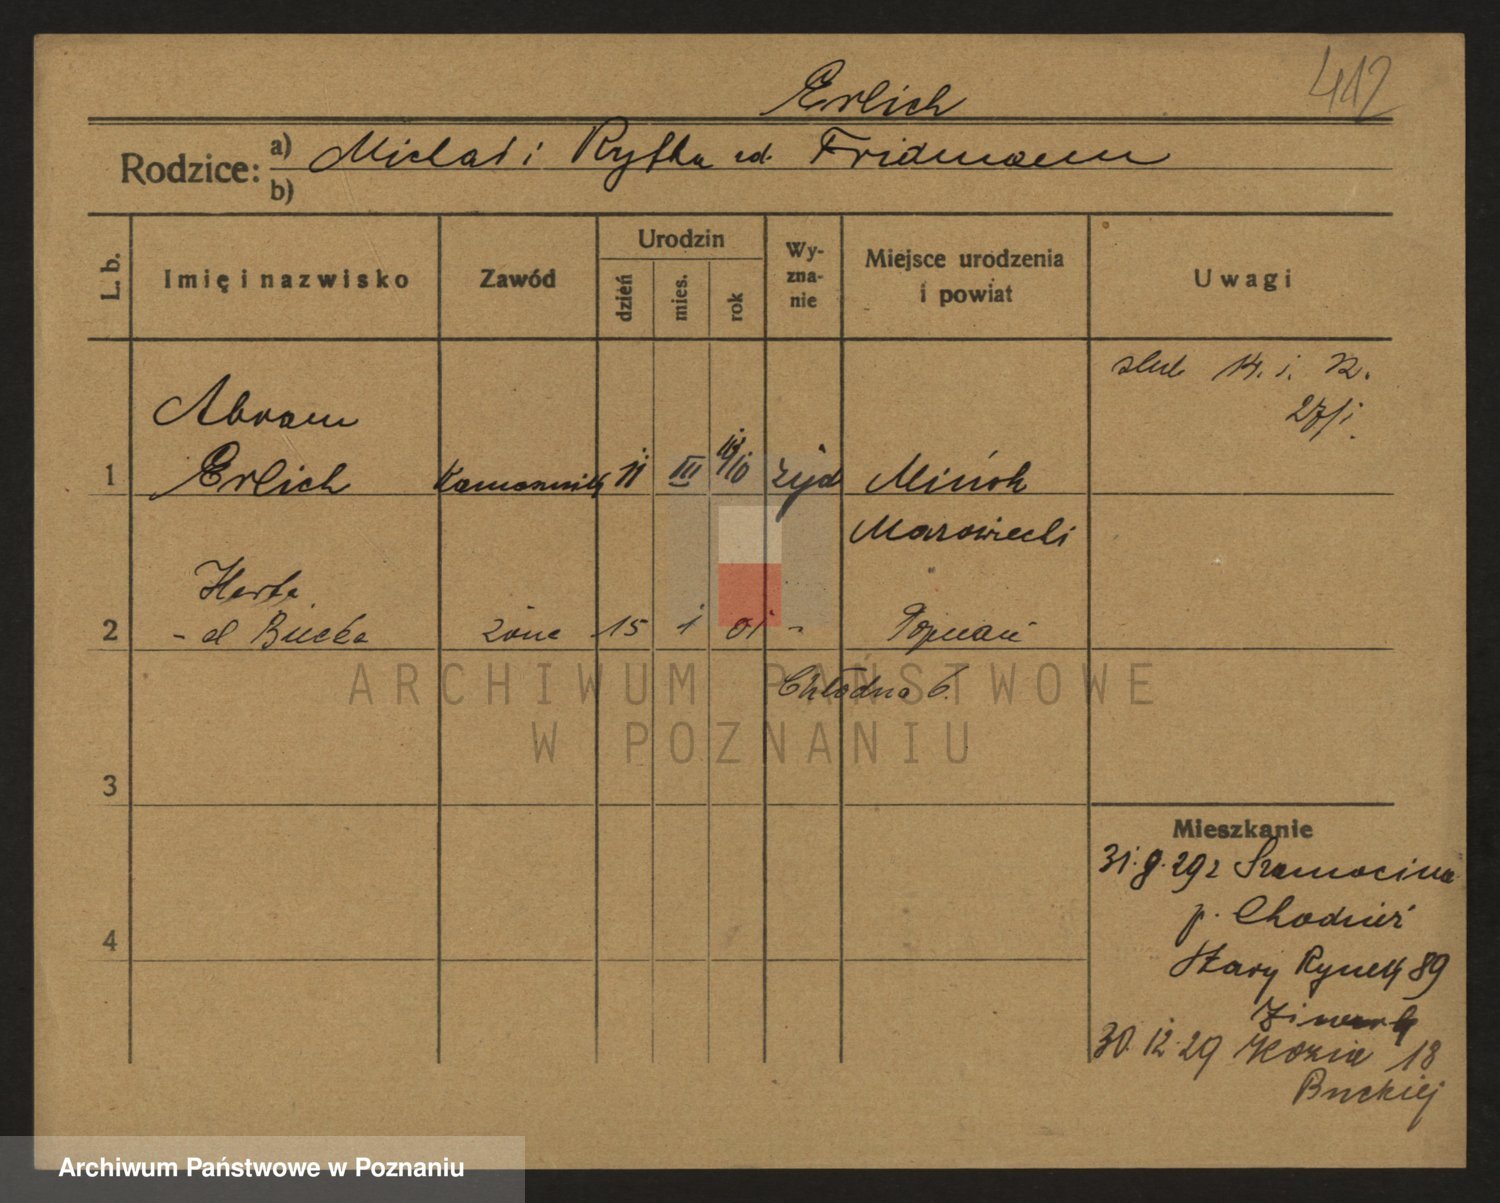 412
Erlich
Rodzice: a) Michał i Ryfka ed. Fridmann
b)
L. b. Imię i nazwisko Zawód Urodzin dzień mies. rok Wyznanie Miejsce urodzenia i powiat Uwagi
slub 14. i. 22.
27/i
Abram
1 Erlich 11 III żyd Mińsk
Mazowiecki
Herta
2 Bucka żona 15 i 01 - Poznań
Chłodna 6.
3
Mieszkanie
31.8.29 z Szamocina
p. Chodzież
4 Stary Rynek 89
30.12.29 Kozia 18
Buckiej
ARCHIWUM PAŃSTWOWE
W POZNANIU
Archiwum Państwowe w Poznaniu